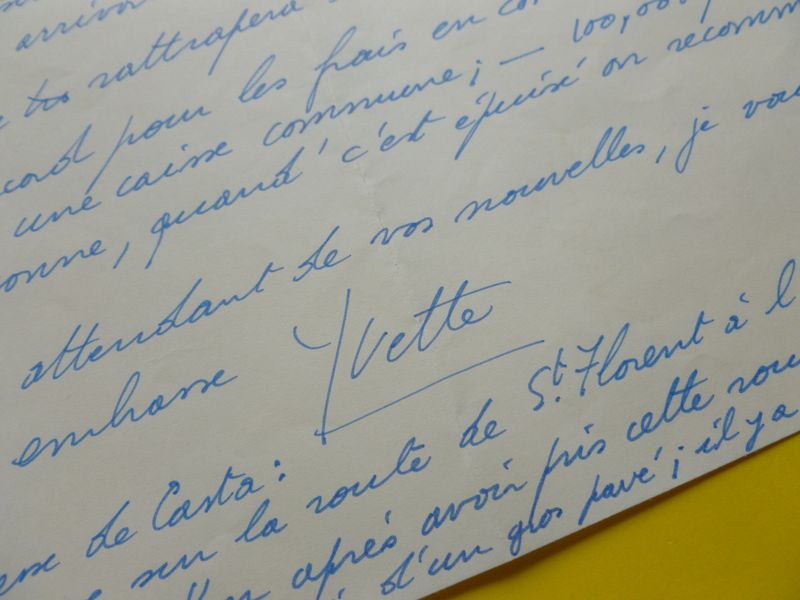 arrivon
rattrapera
cord pour les frais en com
une caisse commune ; — 100,000
onne, quand c'est épuisé on recomm
attendant de vos nouvelles, je vou
embrasse Yvette
esse de Casta :
sur la route de St. Florent à l
après avoir pris cette rou
d'un gros pavé ; il y a